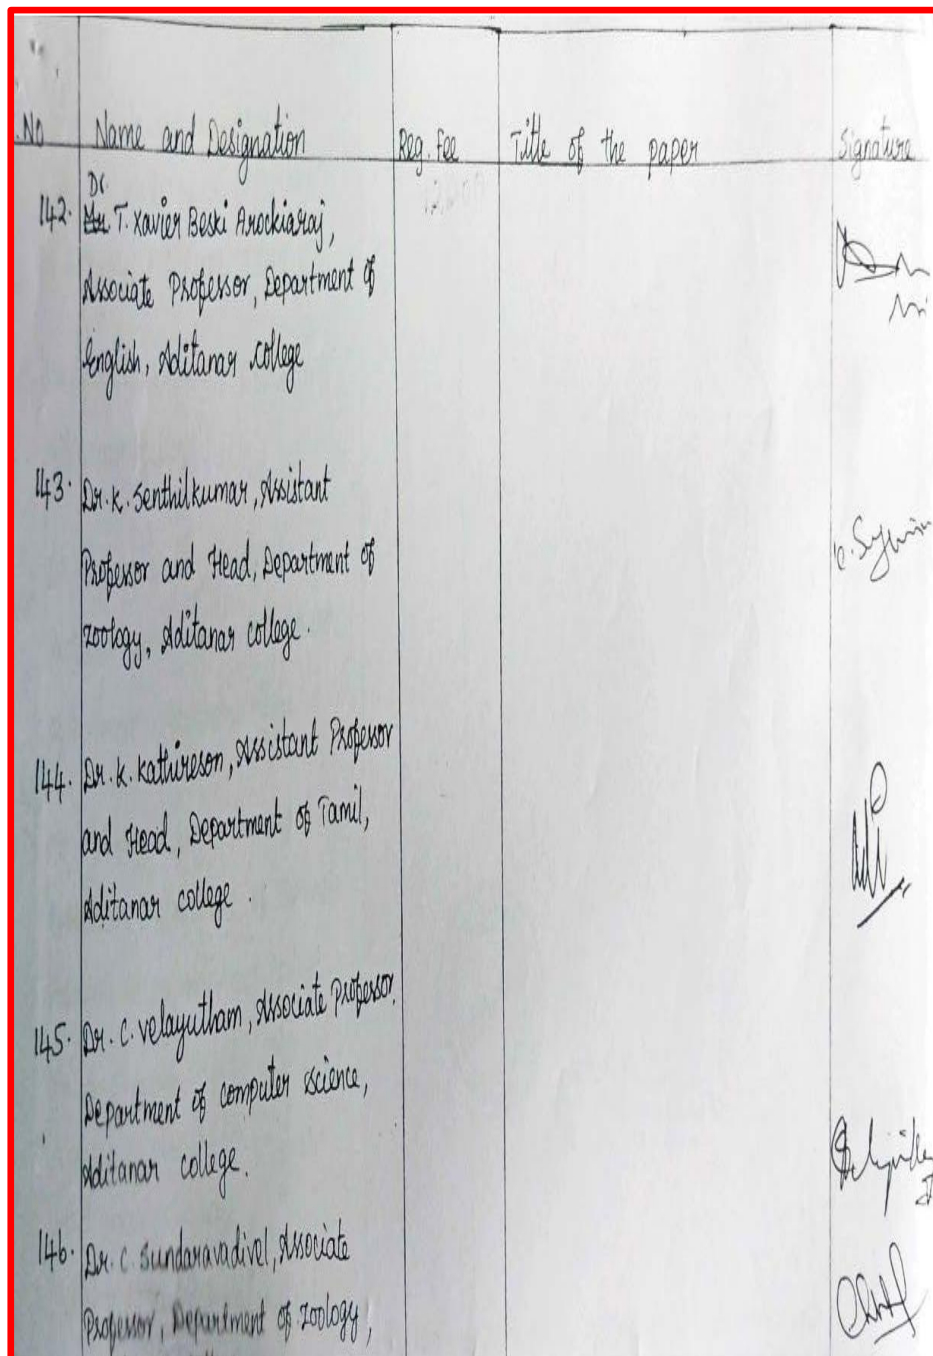 .No Name and Designation Reg. Fee Title of the paper Signature
Dr.
142. Mr. T. Xavier Beski Arockiaraj,
Associate Professor, Department of
English, Aditanar college
143. Dr. K. Senthilkumar, Assistant
Professor and Head, Department of
zoology, Aditanar college.
144. Dr. K. Kathireson, Assistant Professor
and Head, Department of Tamil,
Aditanar college.
145. Dr. C. Velayutham, Associate Professor,
Department of computer science,
Aditanar college.
146. Dr. C. Sundaravadivel, Associate
Professor, Department of zoology,